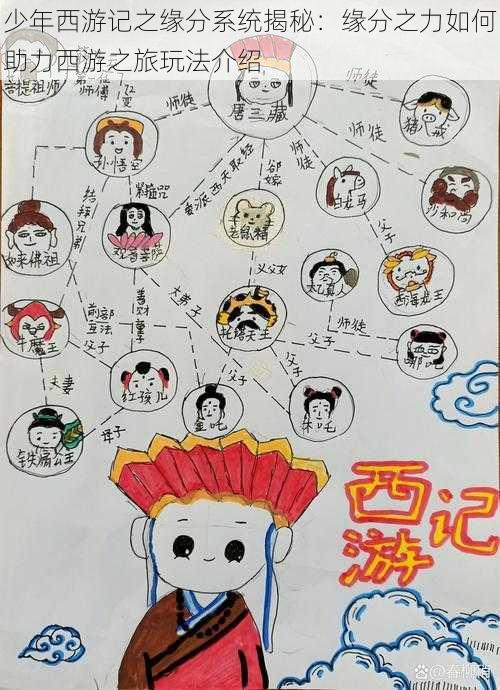 少年西游记之缘分系统揭秘：缘分之力如何
助力西游之旅玩法介绍
菩提祖师
师徒
唐三藏
师徒
猪八戒
孙悟空
师徒
紧箍咒
委派西天取经
结拜兄弟
白龙马
沙和尚
如来佛祖
观音菩萨
老鼠精
父子
义父女
太乙真人
西海龙王
善财童子
大弟子
牛魔王
父子
托塔天王
师徒
父子
哪吒
夫妻
红孩儿
父子
父子
金吒
木吒
铁扇公主
母子
西游记
春柳湾